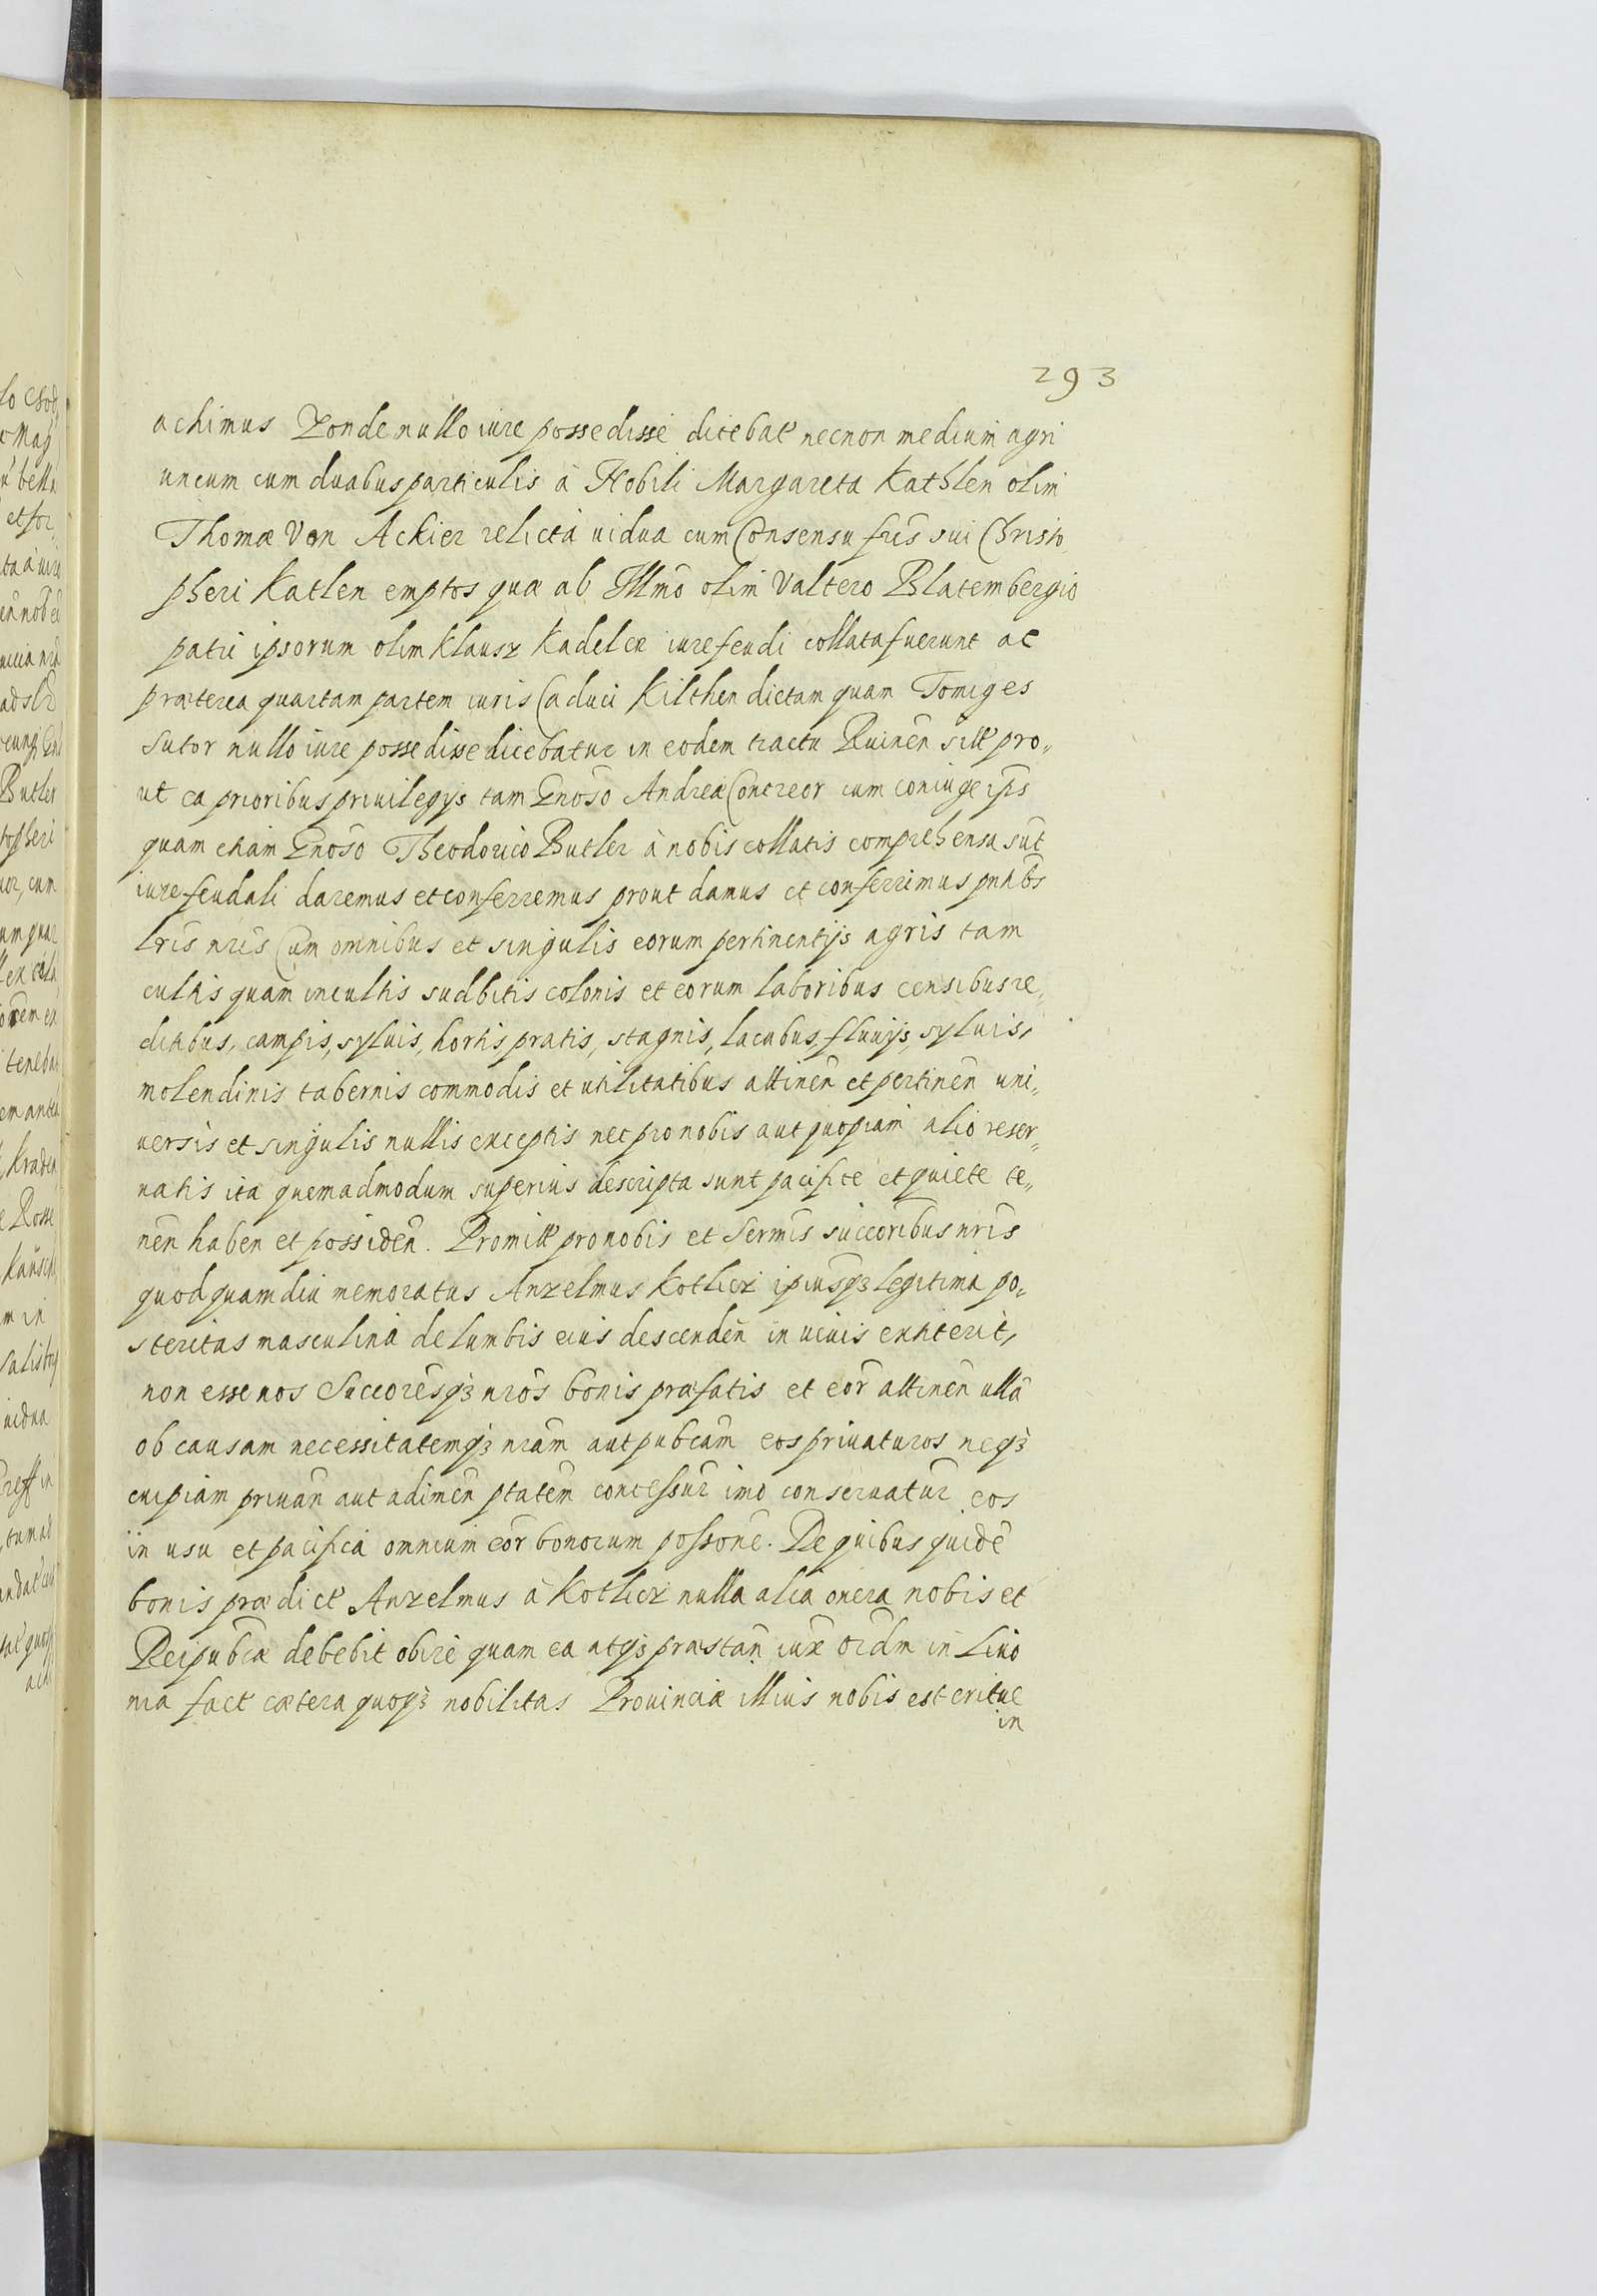 293
achimus Zonde nullo iure possedisse dicebat necnon medium agri
uncum cum duabus particulis à Nobili Margareta Kathlen olim
Thomæ Von Ackier relicta vidua cum Consensu fris sui Christo
pheri Katlen emptos quæ ab Illmo olim Valtero Blatembergio
patri ipsorum olim Klausz Kadelex iure feudi collata fuerunt ac
præterea quartam partem iuris Caduci Kilthen dictam quam Tomiges
Sutor nullo iure possedisse dicebatur in eodem tractu Ruinen sitt pro„
ut ea prioribus priuilegijs tam Gnoso Andreæ Contreor cum coniuge ips
quam etiam Gnoso Theodorico Butler à nobis collatis comprehensa sut
iure feudali daremus et conferremus prout damus et conferrimus pntibs
lris nris Cum omnibus et singulis eorum pertinentijs agris tam
cultis quam incultis sudbitis colonis et eorum laboribus censibus re„
ditibus, campis, syluis, hortis pratis, stagnis, lacubus, fluuijs, syluis,
molendinis tabernis commodis et utilitatibus attinen et pertinen uni„
versis et singulis nullis exceptis nec pro nobis aut quopiam alio reser„
uatis ita quemadmodum superius descripta sunt pacifice et quiete te„
nen haben et possiden. Promitt pro nobis et Sermis succoribus nris
quod quamdiu memoratus Anzelmus Kotlicz ipiusqz legitima po„
steritas masculina de lumbis eius descenden in vivis extiterit,
non esse nos Succoresqz nros bonis præfatis et eor attinen ulla
ob causam necessitatemqz nram aut pubcam eos priuaturos neqz
cuipiam priuan aut adimen ptatem concessur imo conseruatur eos
in usu et pacifica omnium eor bonorum possone. De quibus quide
bonis prædict Anzelmus à Kotlicz nulla alia onera nobis et
Reipubcæ debebit obire quam ea atqz præstan iux ordm in Liuo
nia fact cætera quoqz nobilitas Prouinciæ illius nobis est eritue
in